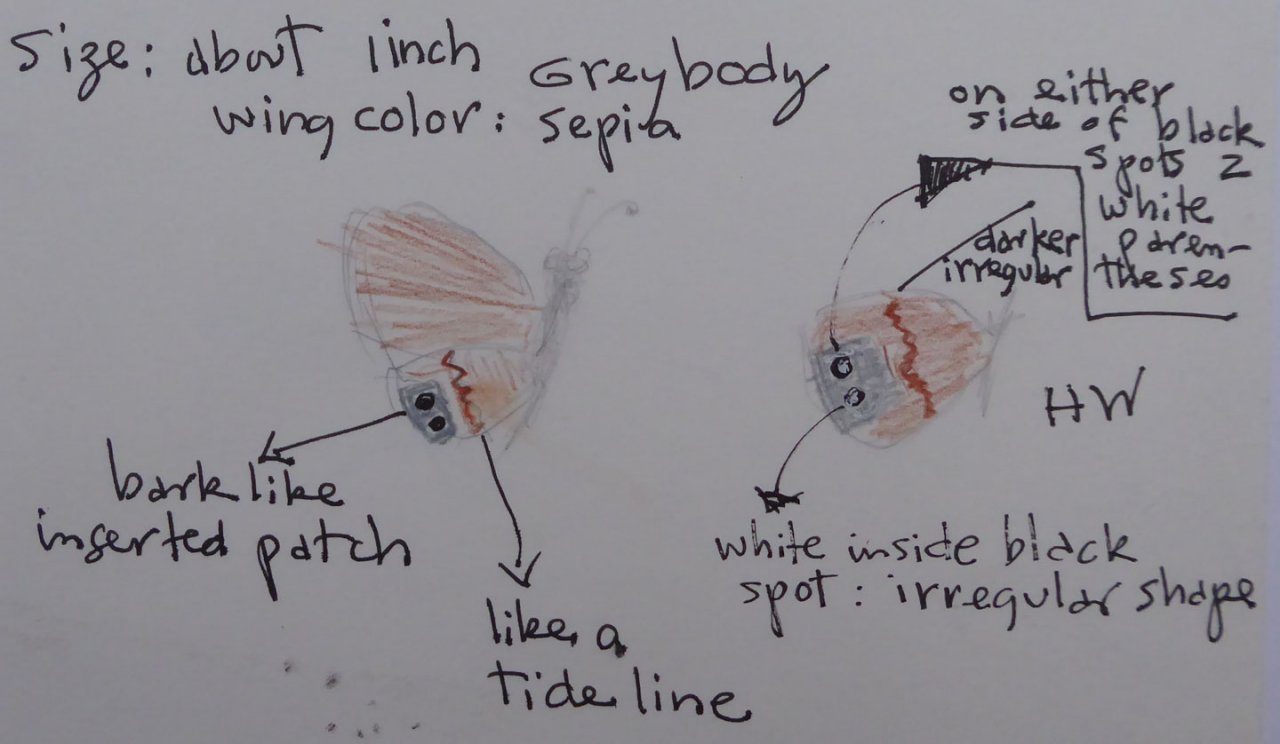 Size: about 1inch Greybody
wing color: sepia
on either
side of black
spots 2
white
paren-
theses
darker
irregular
HW
bark like
inserted patch
white inside black
spot: irregular shape
like a
tide line